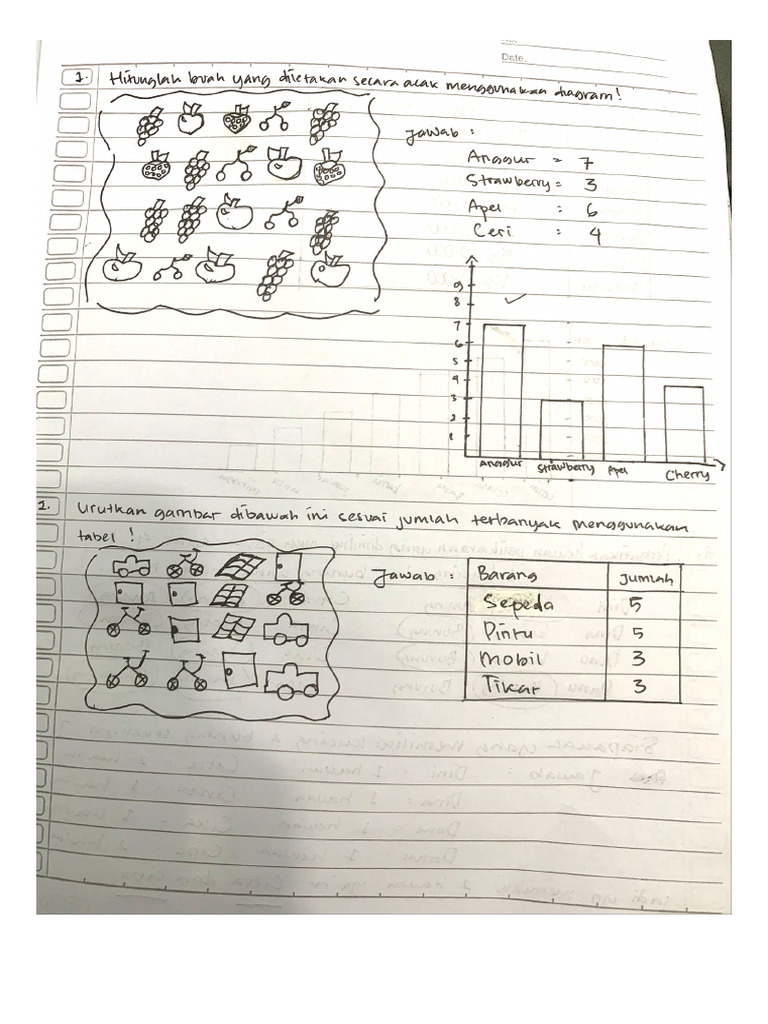 Date.
1. Hitunglah buah yang diletakan secara acak menggunakan diagram!
Jawab :
Anggur = 7
Strawberry = 3
Apel : 6
Ceri : 4
9
8
7
6
5
4
3
2
1
Anggur Strawberry Apel Cherry
2. Urutkan gambar dibawah ini sesuai jumlah terbanyak menggunakan
tabel !
Jawab :
Barang Jumlah
Sepeda 5
Pintu 5
Mobil 3
Tikar 3